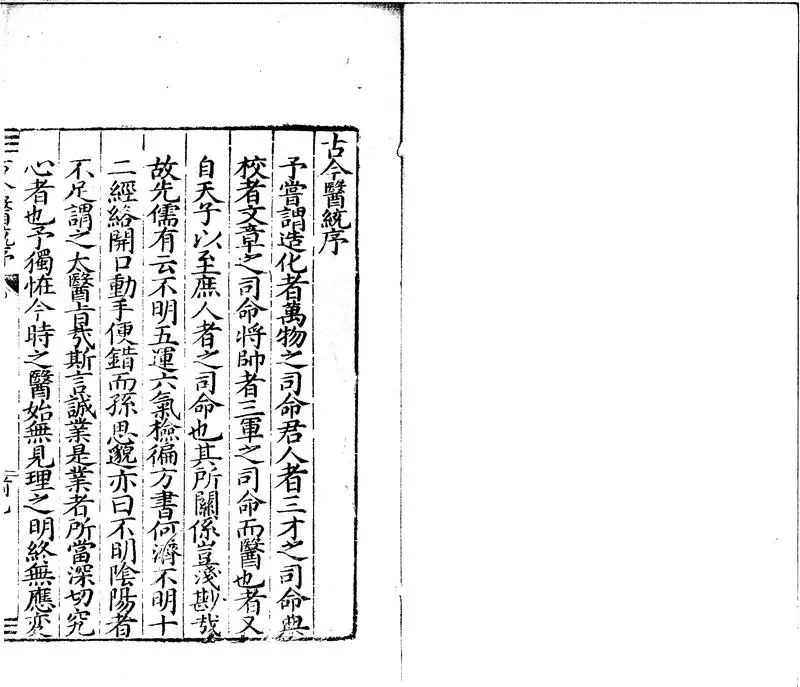 古今醫統序
予嘗謂造化者萬物之司命君人者三才之司命典
校者文章之司命將帥者三軍之司命而醫也者又
自天子以至庶人者之司命也其所關係豈淺尠哉
故先儒有云不明五運六氣檢徧方書何濟不明十
二經絡開口動手便錯而孫思邈亦曰不明陰陽者
不足謂之太醫旨哉斯言誠業是業者所當深切究
心者也予獨恠今時之醫始無見理之明終無應変
古今醫統序